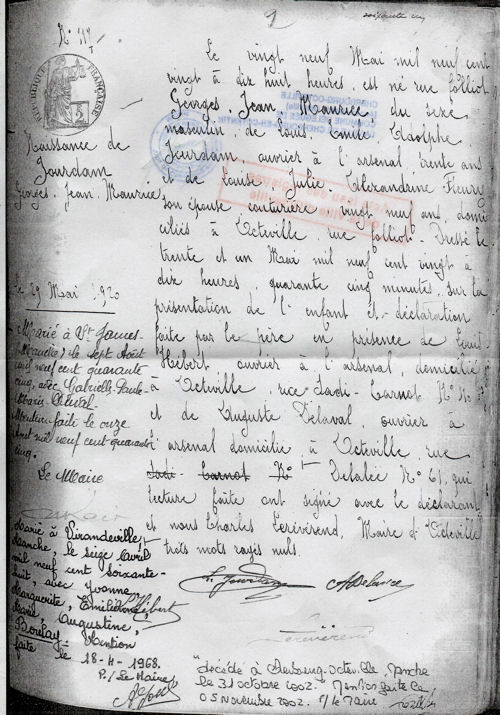 N° 119
RÉPUBLIQUE FRANÇAISE
Naissance de
Jourdam
Georges, Jean, Maurice
Le 29 Mai 1920
Marié à St James
(Manche) le sept Août
mil neuf cent quarante
cinq, avec Gabrielle Paule
Marie
Mention faite le onze
Août mil neuf cent quarante
cinq.
Le Maire
Marié à Virandeville,
Manche, le seize Avril
mil neuf cent soixante-
huit, avec Yvonne,
Marguerite, Emilienne,
Marie, Augustine,
Mention
faite le 18-4-1968.
P./ Le Maire,
Le vingt neuf Mai mil neuf cent
vingt à dix huit heures, est né rue Folliot
Georges, Jean, Maurice, du sexe
masculin, de Louis Emile Adolphe
Jourdam, ouvrier à l'arsenal, trente ans
et de Louise Julie Alexandrine Fleury
son épouse couturière vingt neuf ans, domi
ciliés à Octeville, rue Folliot - Dressé le
trente et un Mai mil neuf cent vingt à
dix heures, quarante cinq minutes, sur la
présentation de l'enfant et déclaration
faite par le père en présence de Louis
Hébert, ouvrier à l'arsenal, domicilié
à Octeville, rue Sadi-Carnot N°
et de Auguste Delaval, ouvrier à
l'arsenal domicilié à Octeville, rue
Sadi - Carnot N° Delalée N° 61, qui
lecture faite ont signé avec le déclarant
et nous Charles Lerévérend, Maire d'Octeville
trois mots rayés nuls.
L. Jourdam
A Delaval
L. Hébert
Lerévérend
"Décédé à Cherbourg-Octeville, Manche
le 31 octobre 2002." Mention faite le
05 Novembre 2002. P/ le Maire